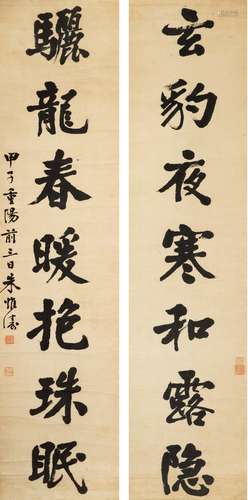 玄豹夜寒和露隐
驪龍春暖抱珠眠
甲子重陽前三日朱惟濤